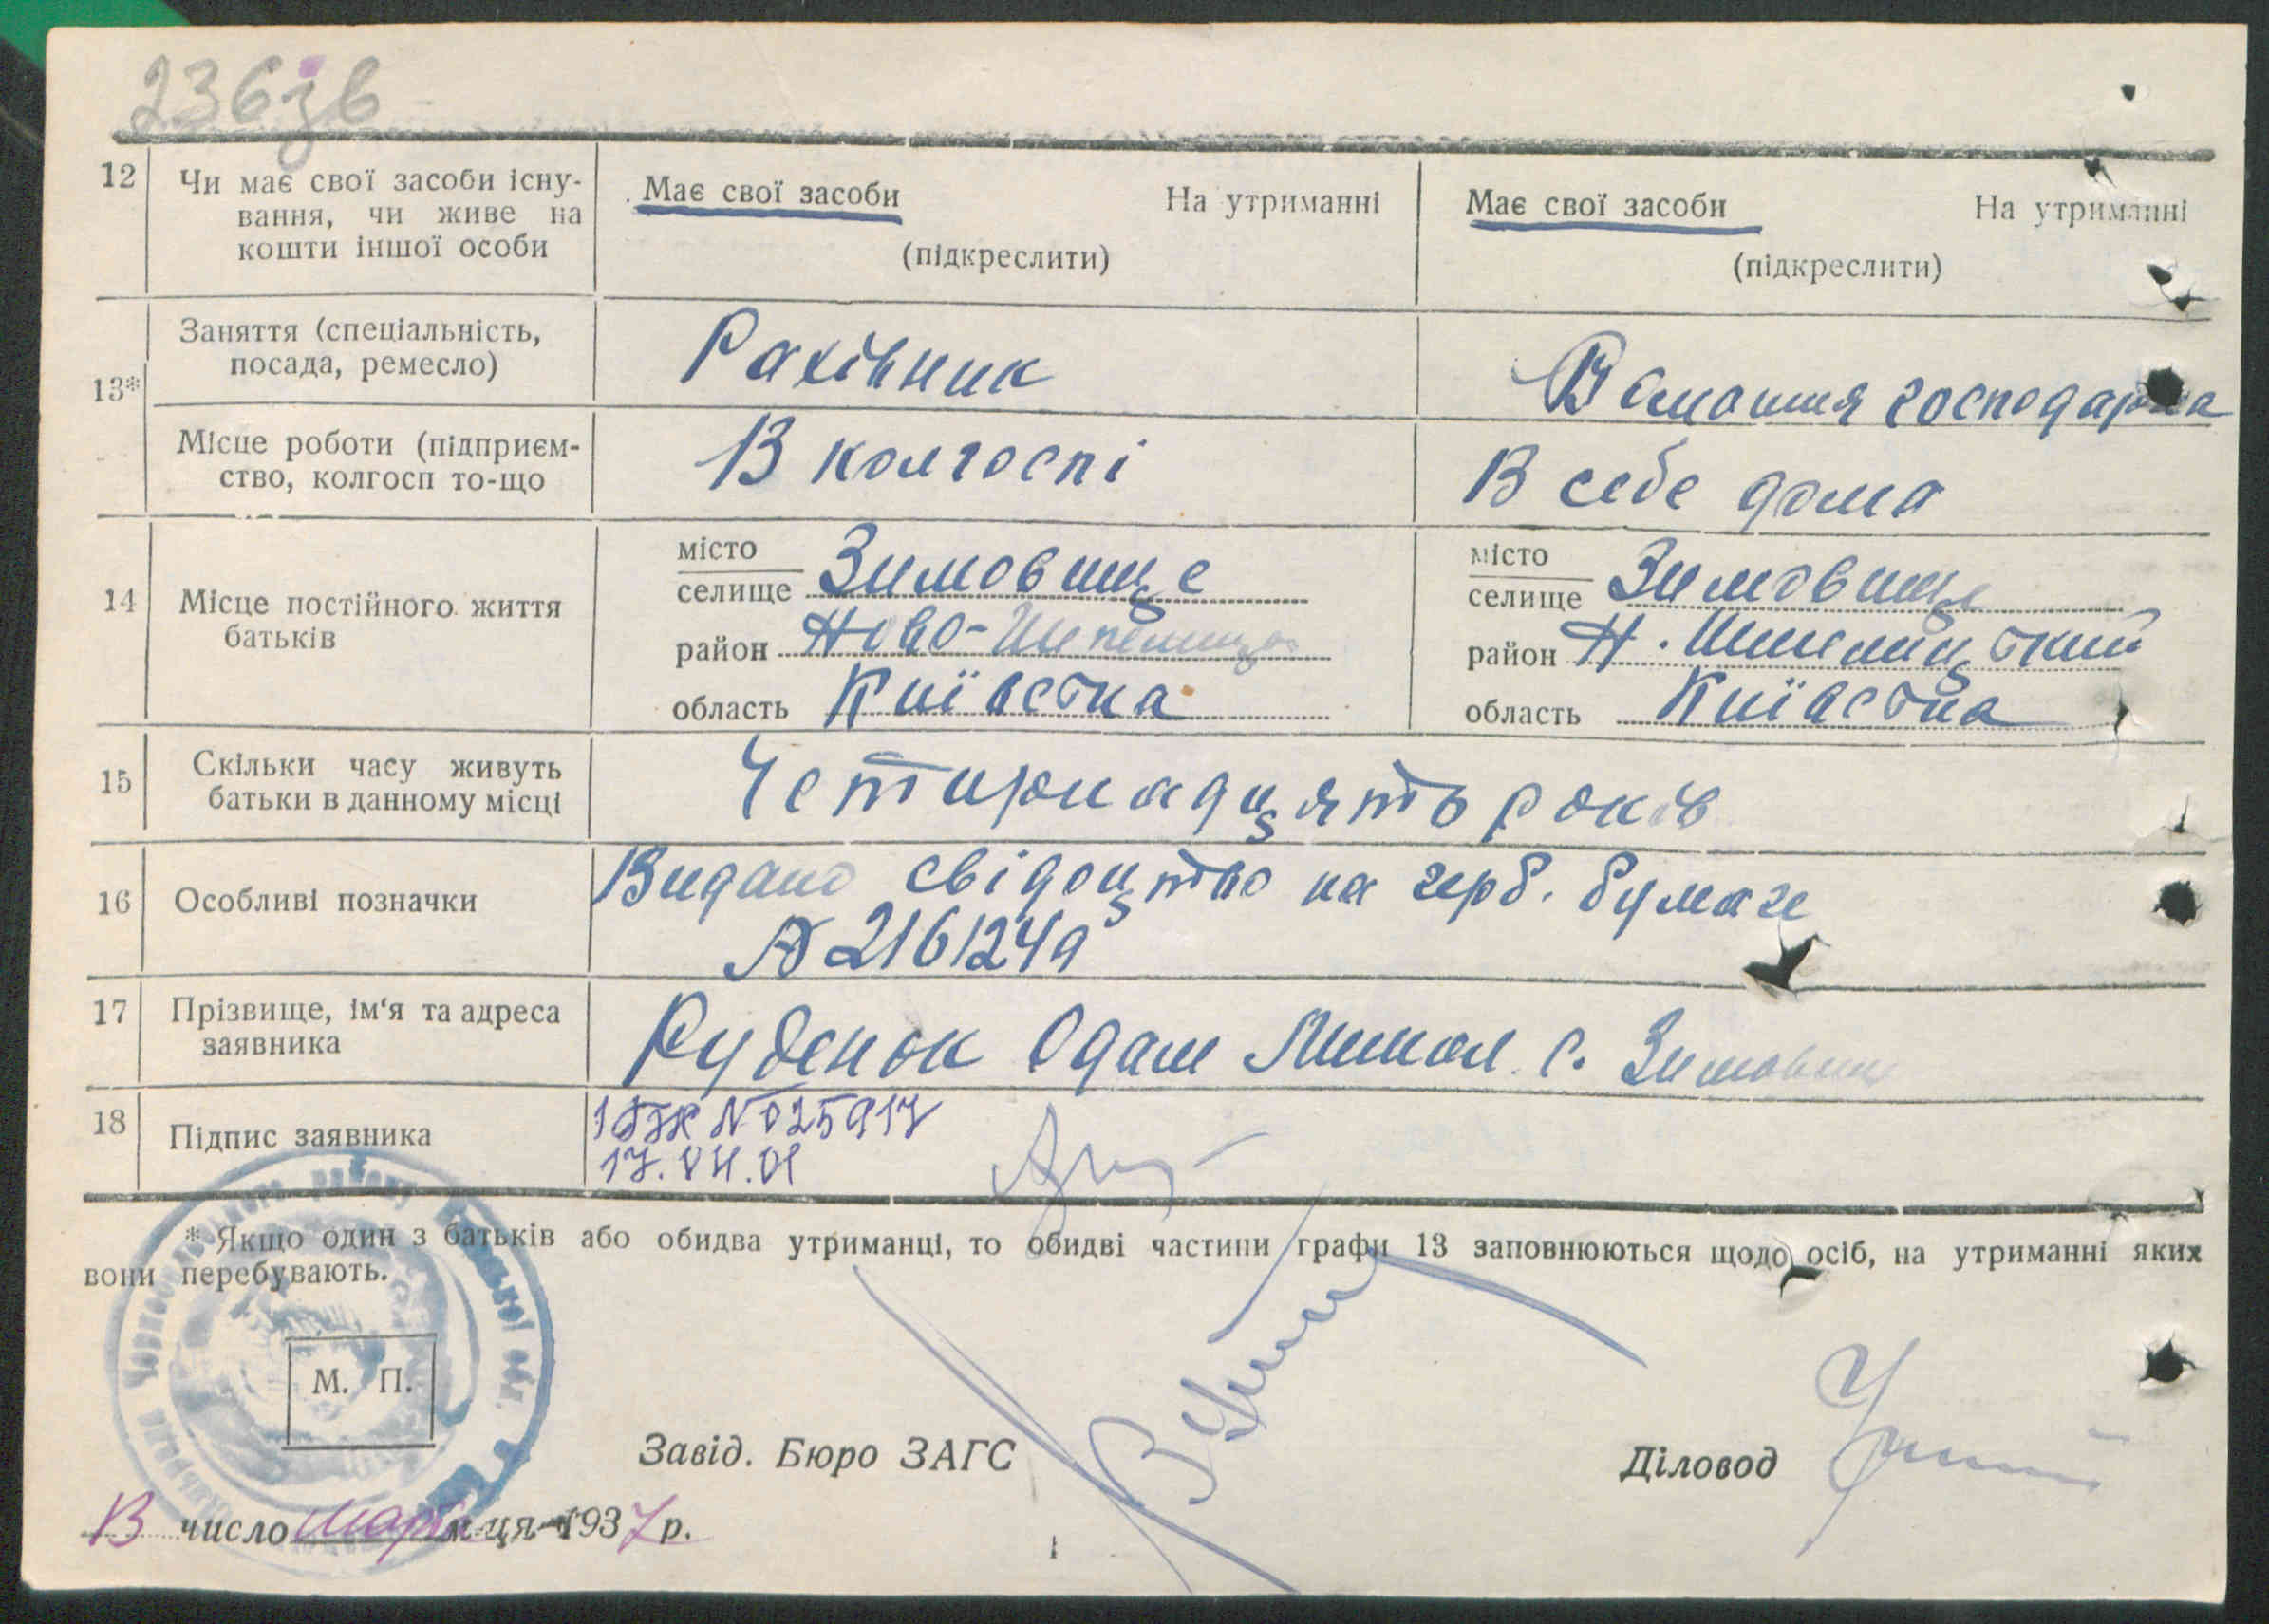 236зв
12 Чи має свої засоби існу-
вання, чи живе на
кошти іншої особи
Має свої засоби На утриманні
(підкреслити)
Має свої засоби На утриманні
(підкреслити)
13*
Заняття (спеціальність,
посада, ремесло)
Рахівник
Домашня господарка
Місце роботи (підприєм-
ство, колгосп то-що
В колгоспі
В себе дома
14 Місце постійного життя
батьків
місто
селище Зимовище
район Ново-Шепелицьк
область Київська
місто
селище Зимовище
район Н. Шепелицький
область Київська
15 Скільки часу живуть
батьки в данному місці
Четирнадцять років
16 Особливі позначки
Видано свідоцтво на герб. бумаге
А 2161249
17 Прізвище, ім‘я та адреса
заявника
Руденок Одам Микол. с. Зимовище
18 Підпис заявника
025917
17.04.01
* Якщо один з батьків або обидва утриманці, то обидві частини графи 13 заповнюються щодо осіб, на утриманні яких
вони перебувають.
М. П.
Завід. Бюро ЗАГС
Діловод
13 число Марта м-ця 1937 р.